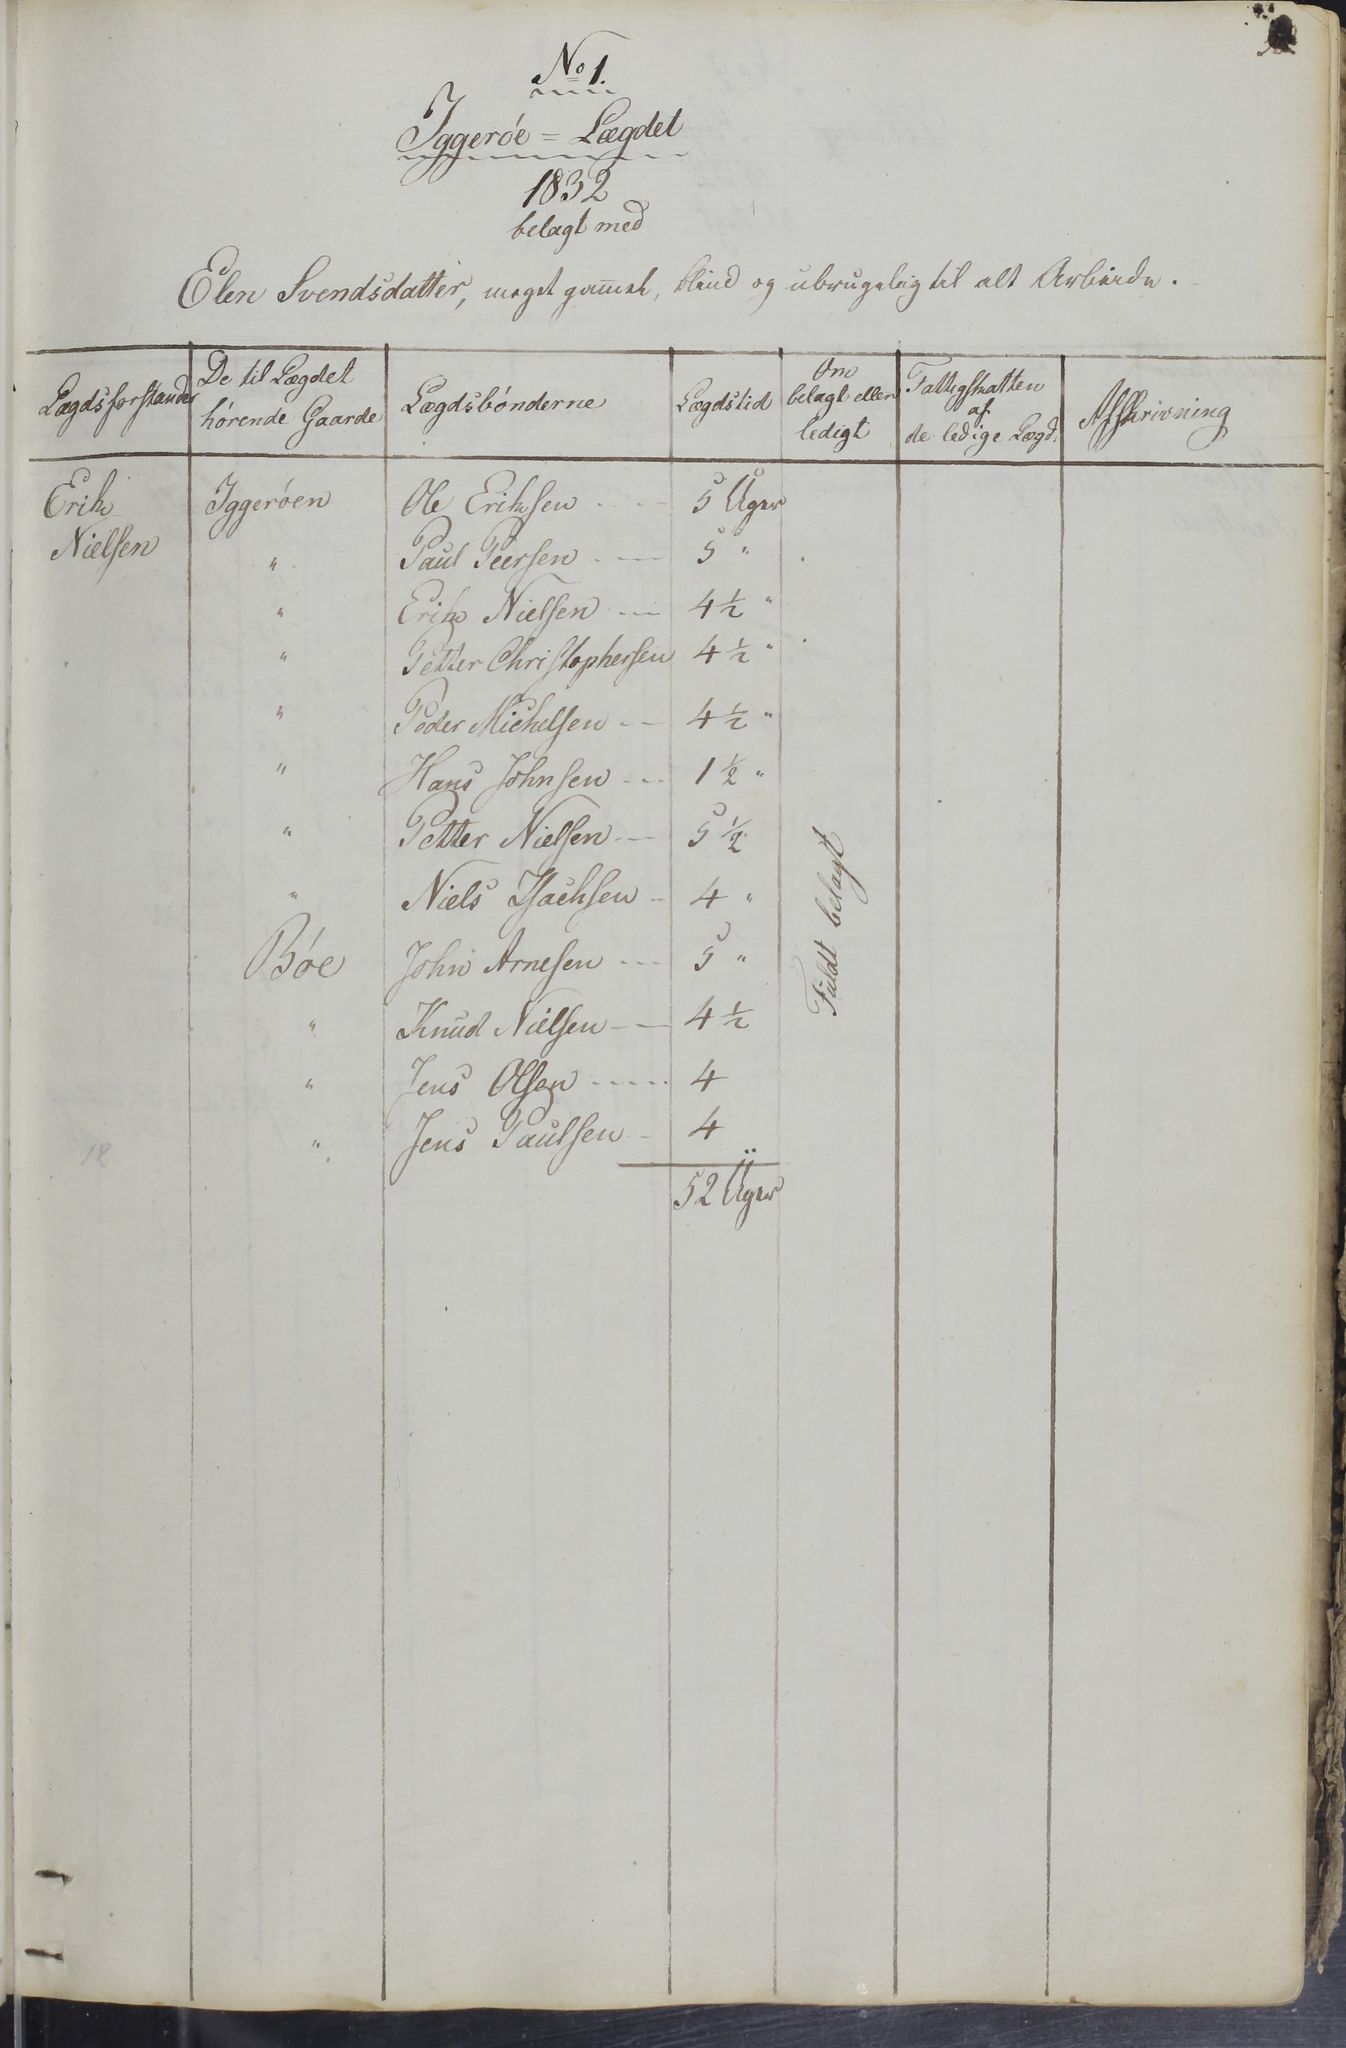 No 1.
Iggerøe = Lægdet
1832
belagt med
Elen Svendsdatter, meget gam̅el, blind og ubrugelig til alt Arbeide.
Lægdsforstander
De til Lægdet
hørende Gaarde
Lægdsbønderne
Lægdstid
Om
belagt eller
ledigt
Fattigskatten
af
de ledige Lægd.
Afskrivning
Erik Iggerøen Ole Eriksen 5 Uger
Nielsen " Paul Peersen 5 "
" Erik Nielsen 4½ "
" Petter Christophersen 4½ "
" Peder Michelsen 4½ "
" Hans Johnsen 1½ "
" Petter Nielsen 5½
" Niels Isachsen 4 "
Bøe John Arnesen 5 "
" Knud Nielsen 4½
" Jens Olsen 4
" Jens Paulsen 4
52 Uger
Fuldt belagt
12